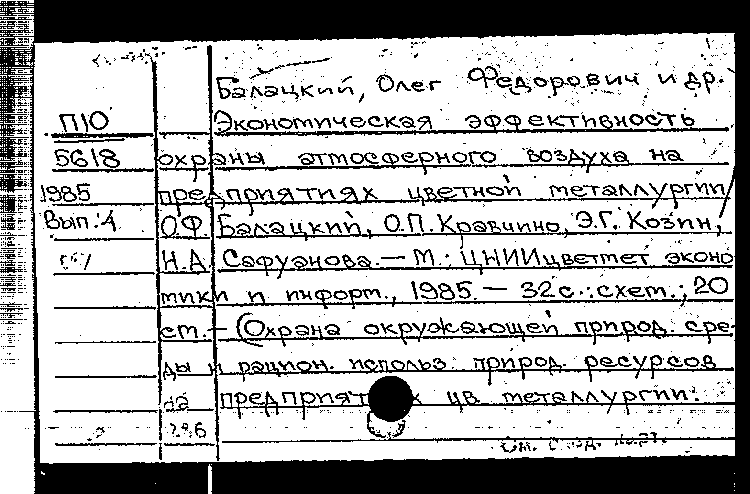 Балацкий, Олег Федорович и др.
П10 Экономическая эффективность
5618 охраны атмосферного воздуха на
1985 предприятиях цветной металлургии /
Вып.4 О.Ф. Балацкий, О.П. Кравчино, Э.Г. Козин,
Н.А. Сафуанова. — М.: ЦНИИцветмет эконо
мики и информ., 1985 — 32 с.: схем.; 20
см. — (Охрана окружающей природ. сре-
ды и рацион. использ. природ. ресурсов
на предприят х цв металлургии.
См.